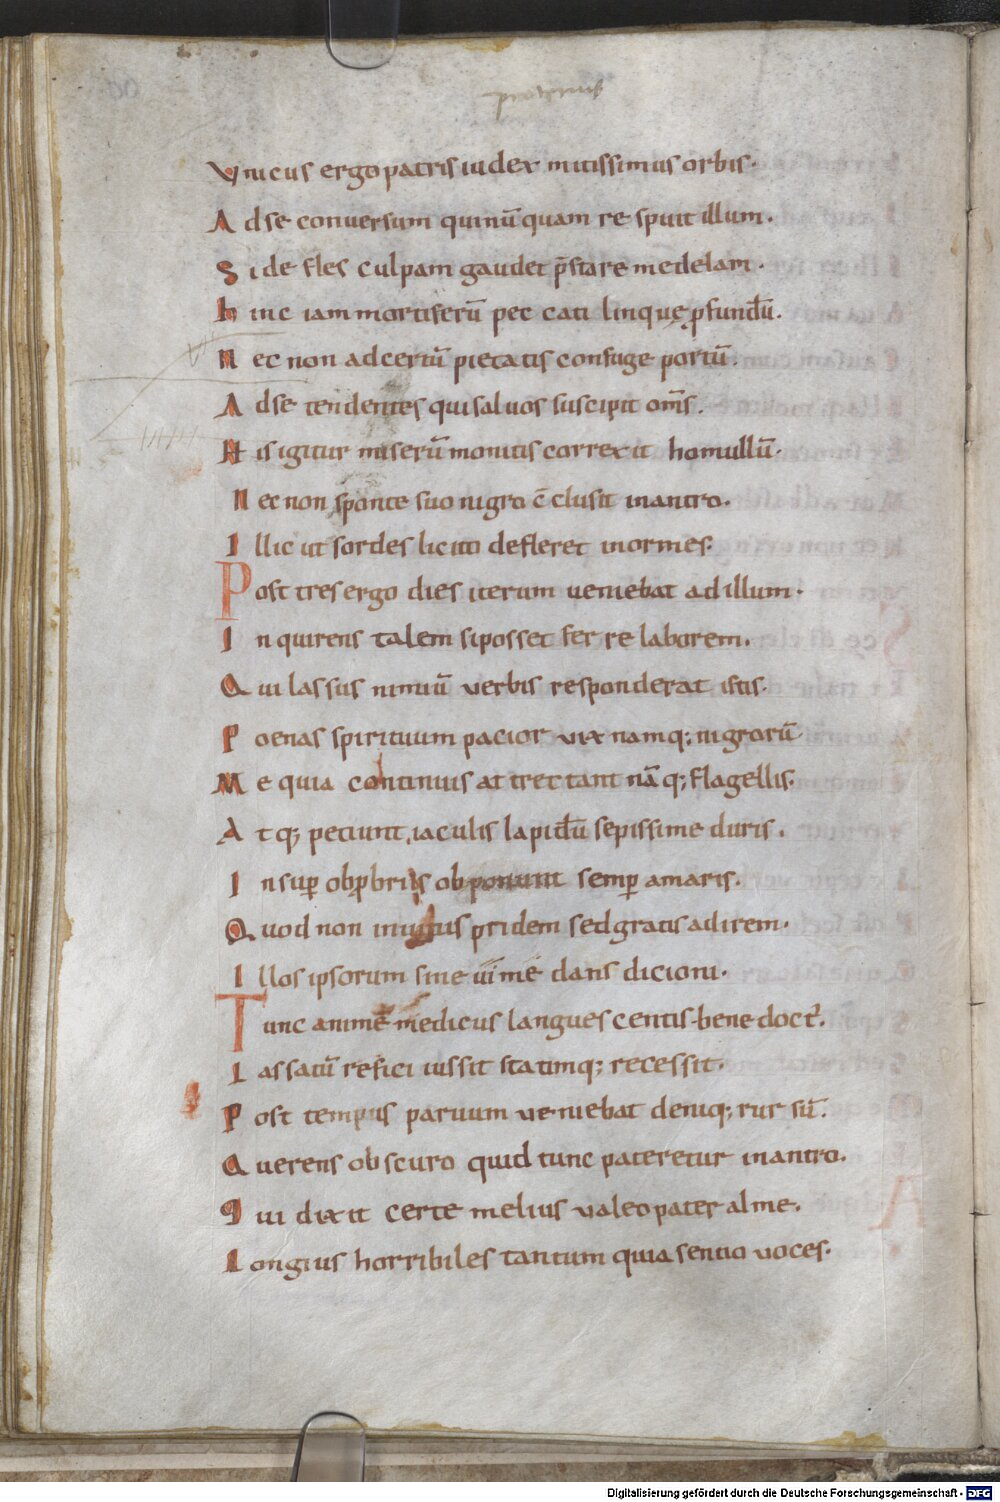 protinus
Vnicus ergo patris iudex mitissimus orbis.
Ad se conversum qui nū quam respuit illum.
Si defles culpam gaudet p̄stare medelam.
hinc iam mortiferū peccati linquę pfundū.
nec non ad certū pietatis confuge portū.
Ad se tendentes qui saluos suscipit om̄s.
His igitur miserū monitis correxit homullū.
Nec non sponte suo nigro c̄clusit in antro.
Illic ut sordes licito defleret inormes.
Post tres ergo dies iterum veniebat ad illum.
Inquirens talem si posset ferre laborem.
Qui lassus nimiū verbis responderat istis.
Poenas spirituum pacior vix namq; nigrorū.
Me quia continuis attrectant nāq; flagellis.
Atq; petiunt iaculis lapidū sepissime duris.
Insup obprbriis obponunt semp amaris.
Quod non inuitus pridem sed gratis adirem.
Illos ipsorum sine vi me dans dicioni.
Tunc animę medicus languescentis bene doct᷒.
Lassatū refici iussit statimq; recessit.
Post tempus paruum veniebat deniq; rursū.
Querens obscuro quid tunc pateretur in antro.
Qui dixit certe melius valeo pater alme.
Longius horribiles tantum quia sentio voces.
Digitalisierung gefördert durch die Deutsche Forschungsgemeinschaft - DFG